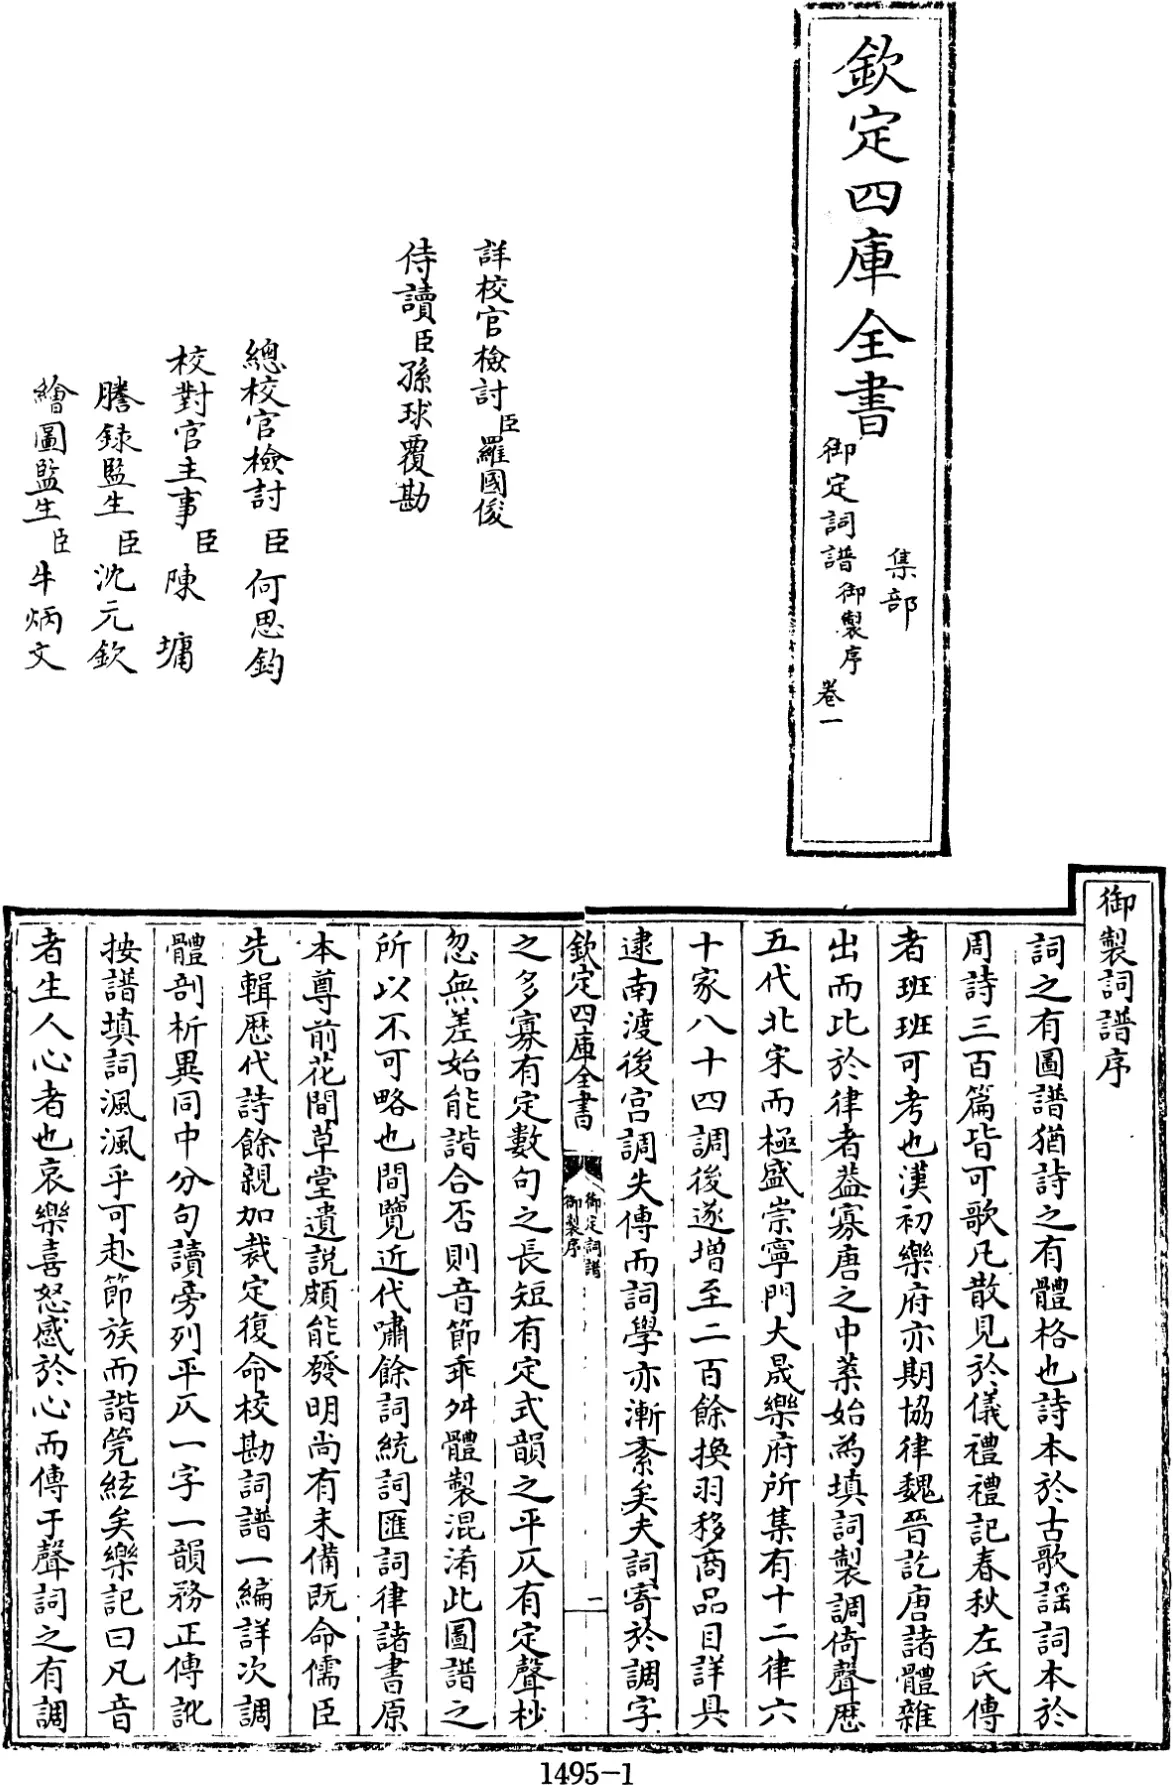 欽定四庫全書
集部
御定詞譜御製序 卷一
詳校官檢討臣羅國俊
侍讀臣孫球覆勘
總校官檢討臣何思鈞
校對官主事臣陳墉
謄錄監生臣沈元欽
繪圖監生臣牛炳文
御製詞譜序
詞之有圖譜猶詩之有體格也詩本於古歌謡詞本於
周詩三百篇皆可歌凡散見於儀禮禮記春秋左氏傳
者班班可考也漢初樂府亦期協律魏晉訖唐諸體雜
出而比於律者葢寡唐之中葉始為填詞製調倚聲歴
五代北宋而極盛崇寧門大晟樂府所集有十二律六
十家八十四調後遂增至二百餘換羽移商品目詳具
逮南渡後宫調失傳而詞學亦漸紊矣夫詞寄於調字
欽定四庫全書
御定詞譜
御製序
一
之多寡有定數句之長短有定式韻之平仄有定聲杪
忽無差始能諧合否則音節乖舛體製混淆此圖譜之
所以不可略也間覽近代嘯餘詞統詞匯詞律諸書原
本尊前花間草堂遺説頗能發明尚有未備既命儒臣
先輯歴代詩餘親加裁定復命校勘詞譜一編詳次調
體剖析異同中分句讀旁列平仄一字一韻務正傳訛
按譜填詞渢渢乎可赴節族而諧筦絃矣樂記曰凡音
者生人心者也哀樂喜怒感於心而傳于聲詞之有調
1495-1